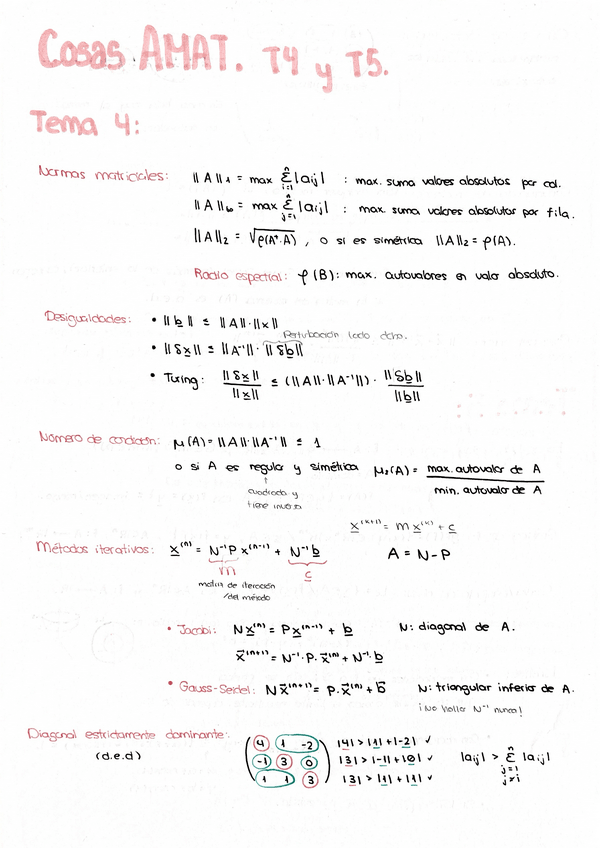 Cosas AMAT. T4 y T5.
Tema 4:
Normas matriciales: ||A||₁ = max Σⁿᵢ₌₁ |aij| : max. suma valores absolutos por col.
||A||∞ = max Σⁿⱼ₌₁ |aij| : max. suma valores absolutos por fila.
||A||₂ = √ρ(A*·A) , o si es simétrica ||A||₂ = ρ(A).
Radio espectral: ρ(B): max. autovalores en valor absoluto.
Desigualdades: • ||b|| ≤ ||A||·||x||
Perturbación lado dcho.
• ||δx|| ≤ ||A⁻¹||·||δb||
• Turing: ||δx|| / ||x|| ≤ (||A||·||A⁻¹||) · ||δb|| / ||b||
Número de condición: μ(A) = ||A||·||A⁻¹|| ≤ 1
o si A es regular y simética μ₂(A) = max. autovalor de A / min. autovalor de A
↑
cuadrada y
tiene inversa
x⁽ᵏ⁺¹⁾ = m x⁽ᵏ⁾ + c
Métodos iterativos: x⁽ⁿ⁾ = N⁻¹P x⁽ⁿ⁻¹⁾ + N⁻¹b A = N-P
m c
matriz de iteración
/del método
• Jacobi: Nx⁽ⁿ⁾ = Px⁽ⁿ⁻¹⁾ + b N: diagonal de A.
x⁽ⁿ⁺¹⁾ = N⁻¹·P·x⁽ⁿ⁾ + N⁻¹·b
• Gauss-Seidel: Nx⁽ⁿ⁺¹⁾ = P·x⁽ⁿ⁾ + b N: triangular inferior de A.
¡No hallar N⁻¹ nunca!
Diagonal estrictamente dominante: 4 1 -2 |4| > |1| + |-2| ✓
(d.e.d) -1 3 0 |3| > |-1| + |0| ✓ |aij| > Σⁿ |aij|
j=1
j≠i
1 1 3 |3| > |1| + |1| ✓